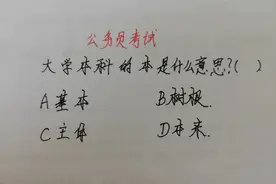 公务员考试
大学本科的本是什么意思?( )
A基本 B树根.
C主体 D本来.